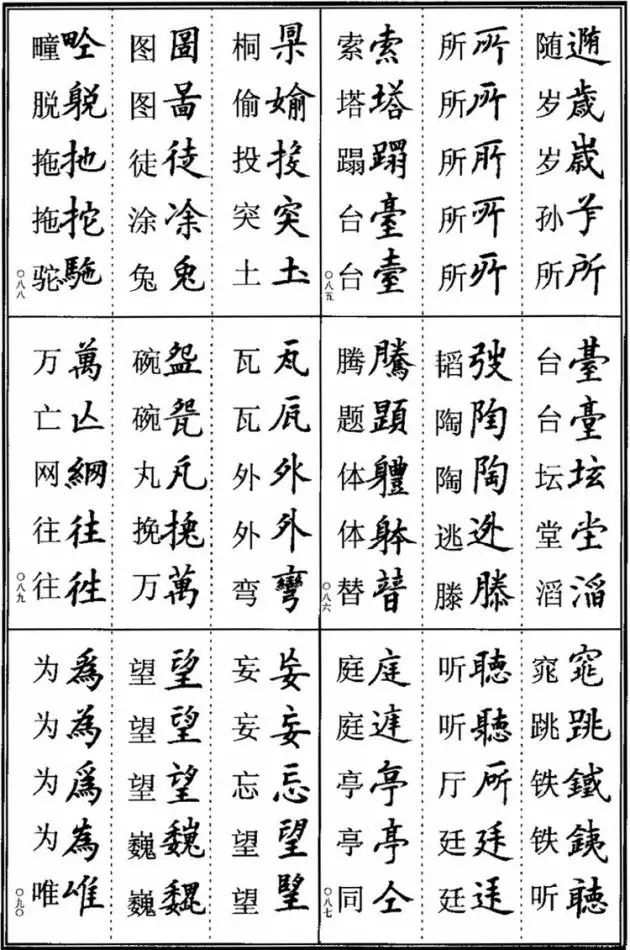 随遀 岁歳 岁嵗 孙 所所
所所 所所 所所 所所 所所
索索 塔塔 蹋蹋 台臺 台臺
〇八五
台臺 台臺 坛坛 堂坣 滔滔
韬弢 陶陶 陶陶 逃迯 滕滕
腾騰 题題 体軆 体躰 替
〇八六
窕窕 跳跳 铁鐵 铁銕 听聴
听聽 听聽 厅 廷廷 廷
庭庭 庭 亭亭 亭亭 同仝
〇八七
桐 偷媮 投投 突突 土圡
图圖 图啚 徒徒 涂凃 兔兔
疃 脱 拖扡 拖拕 驼駞
〇八八
瓦 瓦 外外 外外 弯彎
碗盌 碗 丸 挽 万萬
万萬 亡亾 网網 往往 往徃
〇八九
妄妄 妄妄 忘忘 望望 望
望望 望望 望望 巍巍 巍
为爲 为為 为爲 为為 唯唯
〇九〇